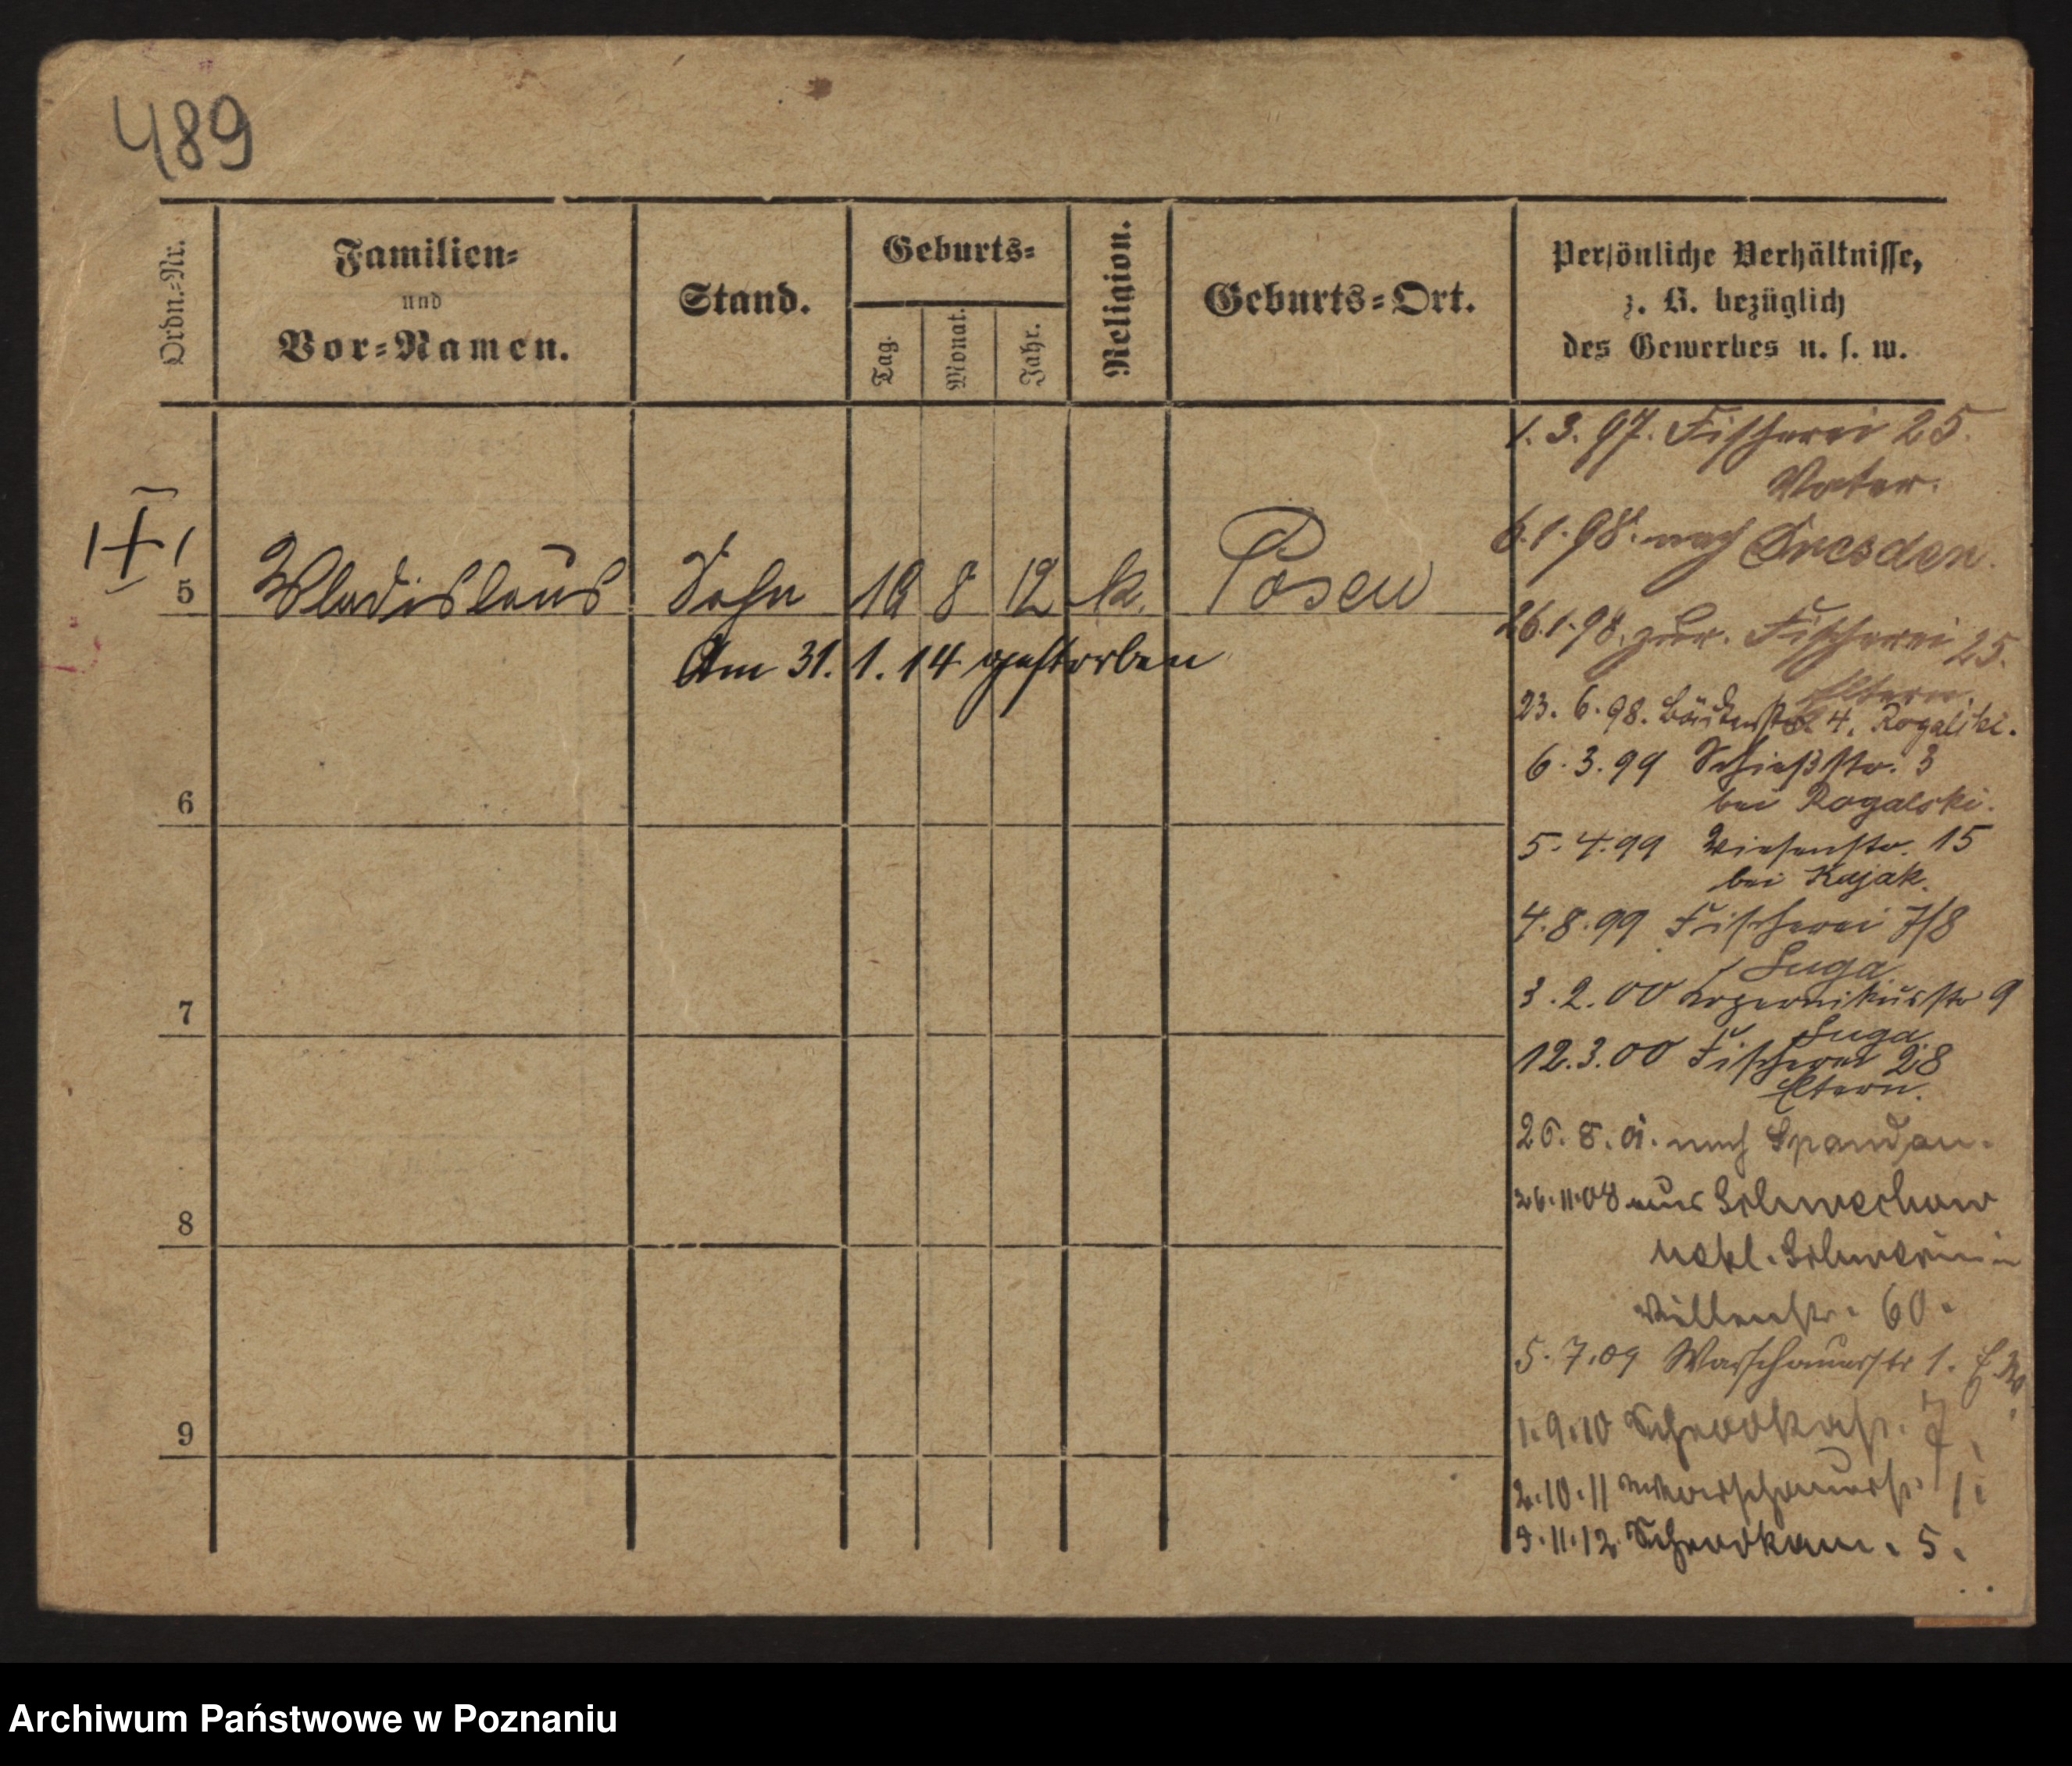 489
Ordn.-Nr.
Familien-
und
Vor-Namen.
Stand.
Geburts-
Tag.
Monat.
Jahr.
Religion.
Geburts-Ort.
Persönliche Verhältnisse,
z. B. bezüglich
des Gewerbes u. s. w.
1.3.97. Fischerei 25.
Vater.
6.1.98. nach Dresden.
5 Wladislaus Sohn 18 8 12 k. Posen
26.1.98. zur. Fischerei 25.
Eltern.
Am 31.1.14 gestorben
23.6.98. Bäckerstr. 4. Rogalski.
6.3.99 Schießstr. 3
bei Rogalski.
6
5.4.99 Wiesenstr. 15
bei Kajak.
4.8.99 Fischerei 7/8
Suga
3.2.00 Kopernikusstr 9
Suga
7
12.3.00 Fischerei 28
Eltern.
26.8.01. nach Spandau.
26.11.08 aus Schwechow
8
Mekl. Schwerin in
60.
5.7.09 Warschauerstr 1. E.W.
1.9.10 Schrodkastr. 7.
9
2.10.11 Warschauerstr. 1.
9.11.12 Schrodkam. 5.
Archiwum Państwowe w Poznaniu